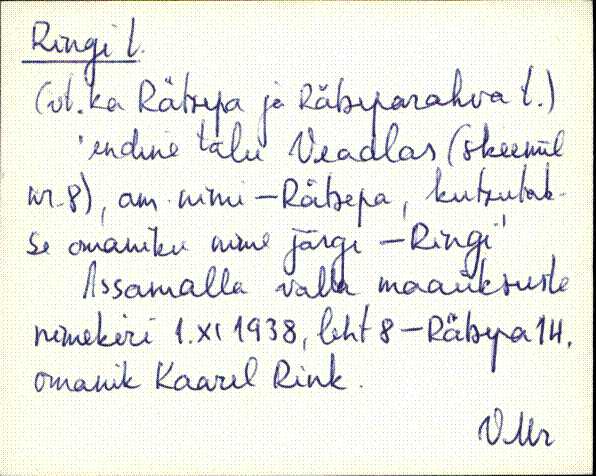 Ringi t.
(vt. ka Rätsepa ja Rätseparahva t.)
'endine talu Veadlas (skeemil
nr. 8), am. nimi – Rätsepa, kutsutak-
se omaniku nime järgi – Ringi'
Assamalla valla maaüksuste
nimekiri 1.XI 1938, leht 8 – Rätsepa 14,
omanik Kaarel Rink.